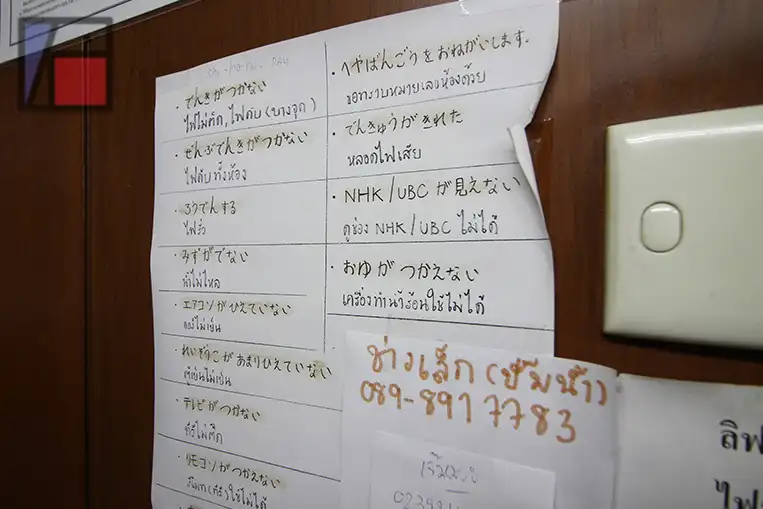 ・でんきがつかない
ไฟไม่ติด, ไฟดับ (บางจุด)
・ぜんぶでんきがつかない
ไฟดับทั้งห้อง
・ろうでんする
ไฟรั่ว
・みずがでない
น้ำไม่ไหล
・エアコンがひえていない
แอร์ไม่เย็น
・れいぞうこがあまりひえていない
ตู้เย็นไม่เย็น
・テレビがつかない
ทีวีไม่ติด
・リモコンがつかえない
รีโมท(ทีวี)ใช้ไม่ได้
・へやばんごうをおねがいします.
ขอทราบหมายเลขห้องด้วย
・でんきゅうがきれた
หลอดไฟเสีย
・NHK/UBC が見えない
ดูช่อง NHK/UBC ไม่ได้
・おゆがつかえない
เครื่องทำน้ำร้อนใช้ไม่ได้
ช่างเล็ก (ปั๊มน้ำ)
089-891 7783
ลิฟ
ไฟ